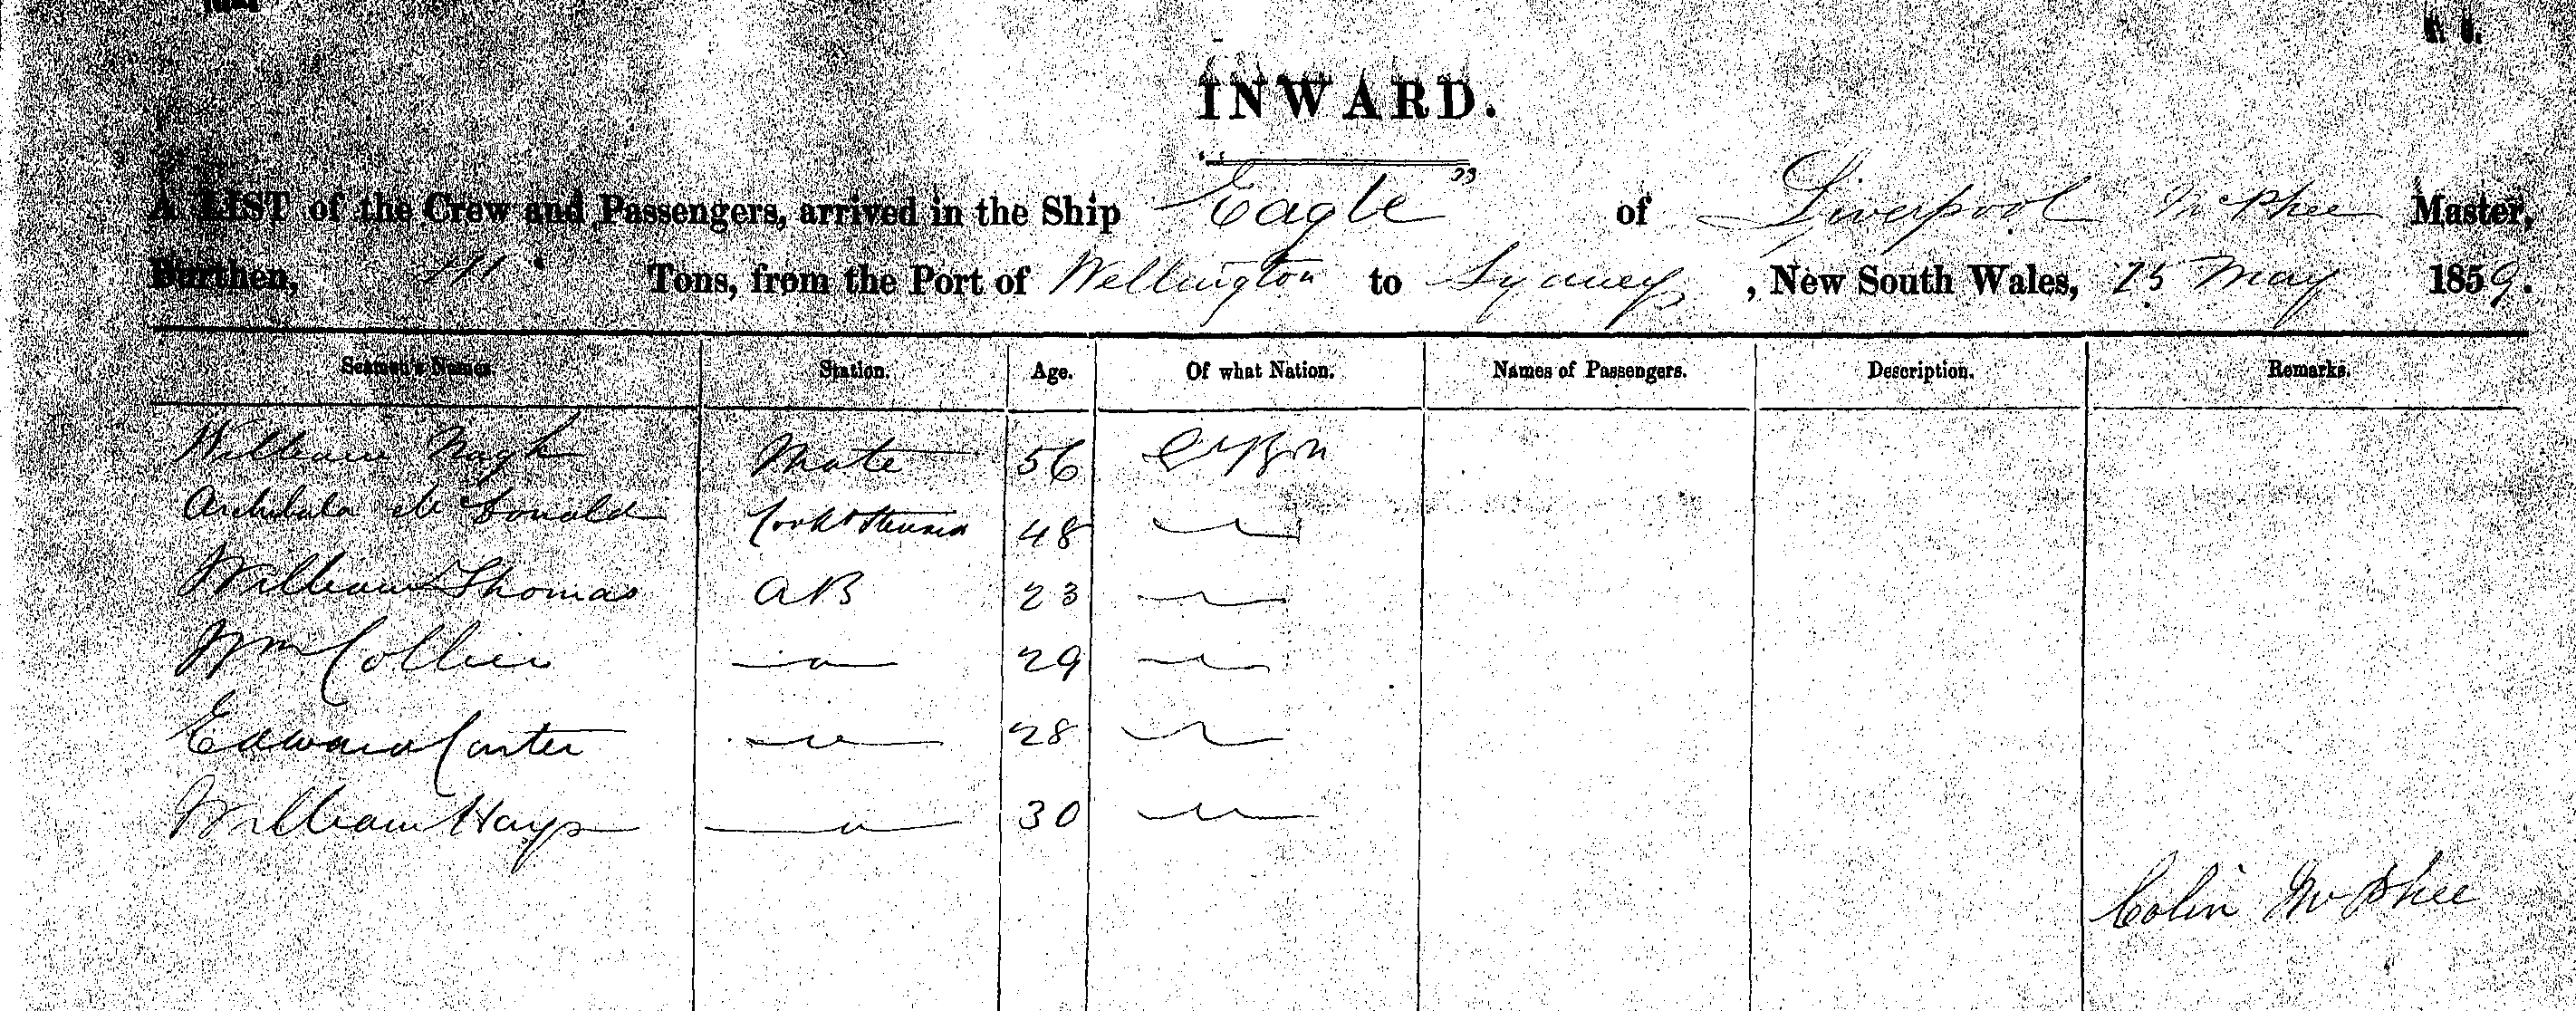 INWARD.
A LIST of the Crew and Passengers, arrived in the Ship Eagle of Liverpool McPhee Master,
Burthen, Tons, from the Port of Wellington to Sydney, New South Wales, 25 May 1859.
Seamen's Names. Station. Age. Of what Nation. Names of Passengers. Description. Remarks.
William Mate 56
Archibald McDonald Cook & Steward 48
William Thomas AB 23
Wm Collier 29
Edward Carter 28
William Hays 30
Colin McPhee